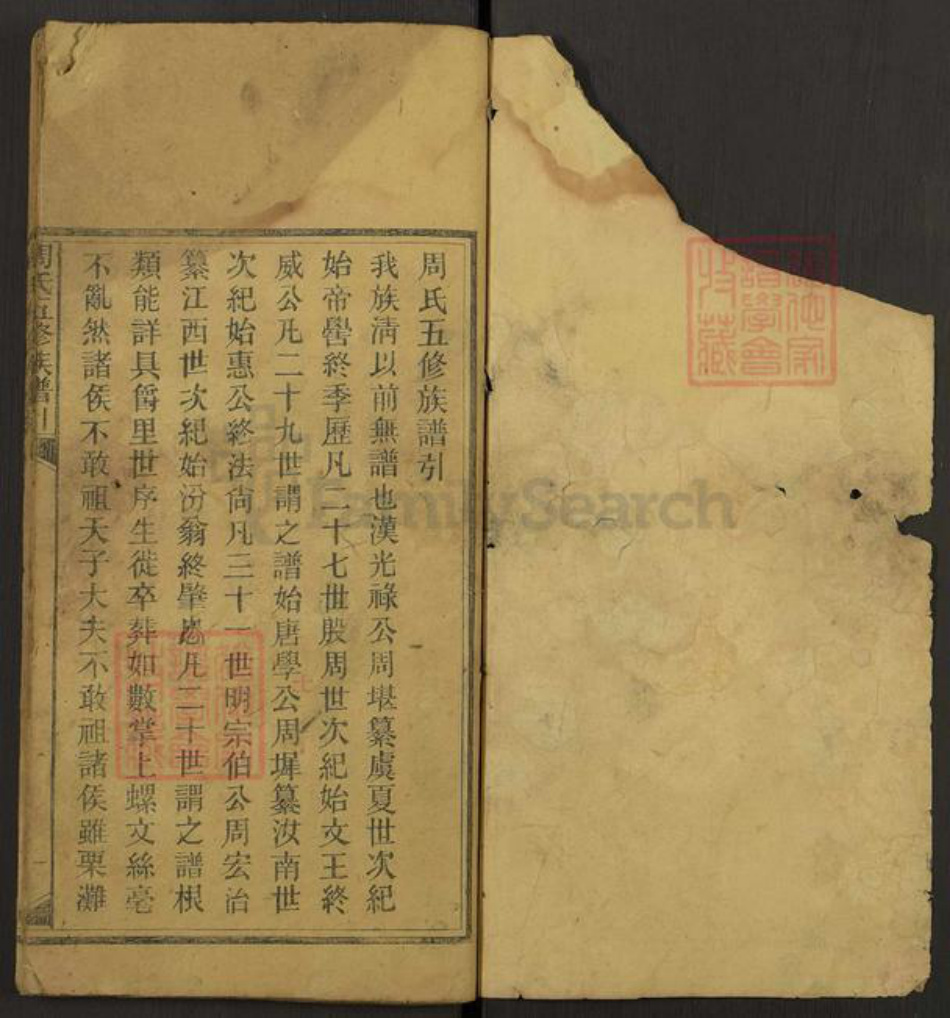 周氏五修族譜引
我族淸以前無譜也漢光祿公周堪纂虞夏世次紀
始帝嚳終季歷凡二十七世殷周世次紀始文王終
威公凡二十九世謂之譜始唐學公周墀纂汝南世
次紀始惠公終法尚凡三十一世明宗伯公周宏治
纂江西世次紀始汾翁終肇凡二十世謂之譜根
類能詳具爵里世序生徙卒葬如數掌上螺文絲毫
不亂然諸侯不敢祖天子大夫不敢祖諸侯雖栗灘
周氏五修族譜引
FamilySearch